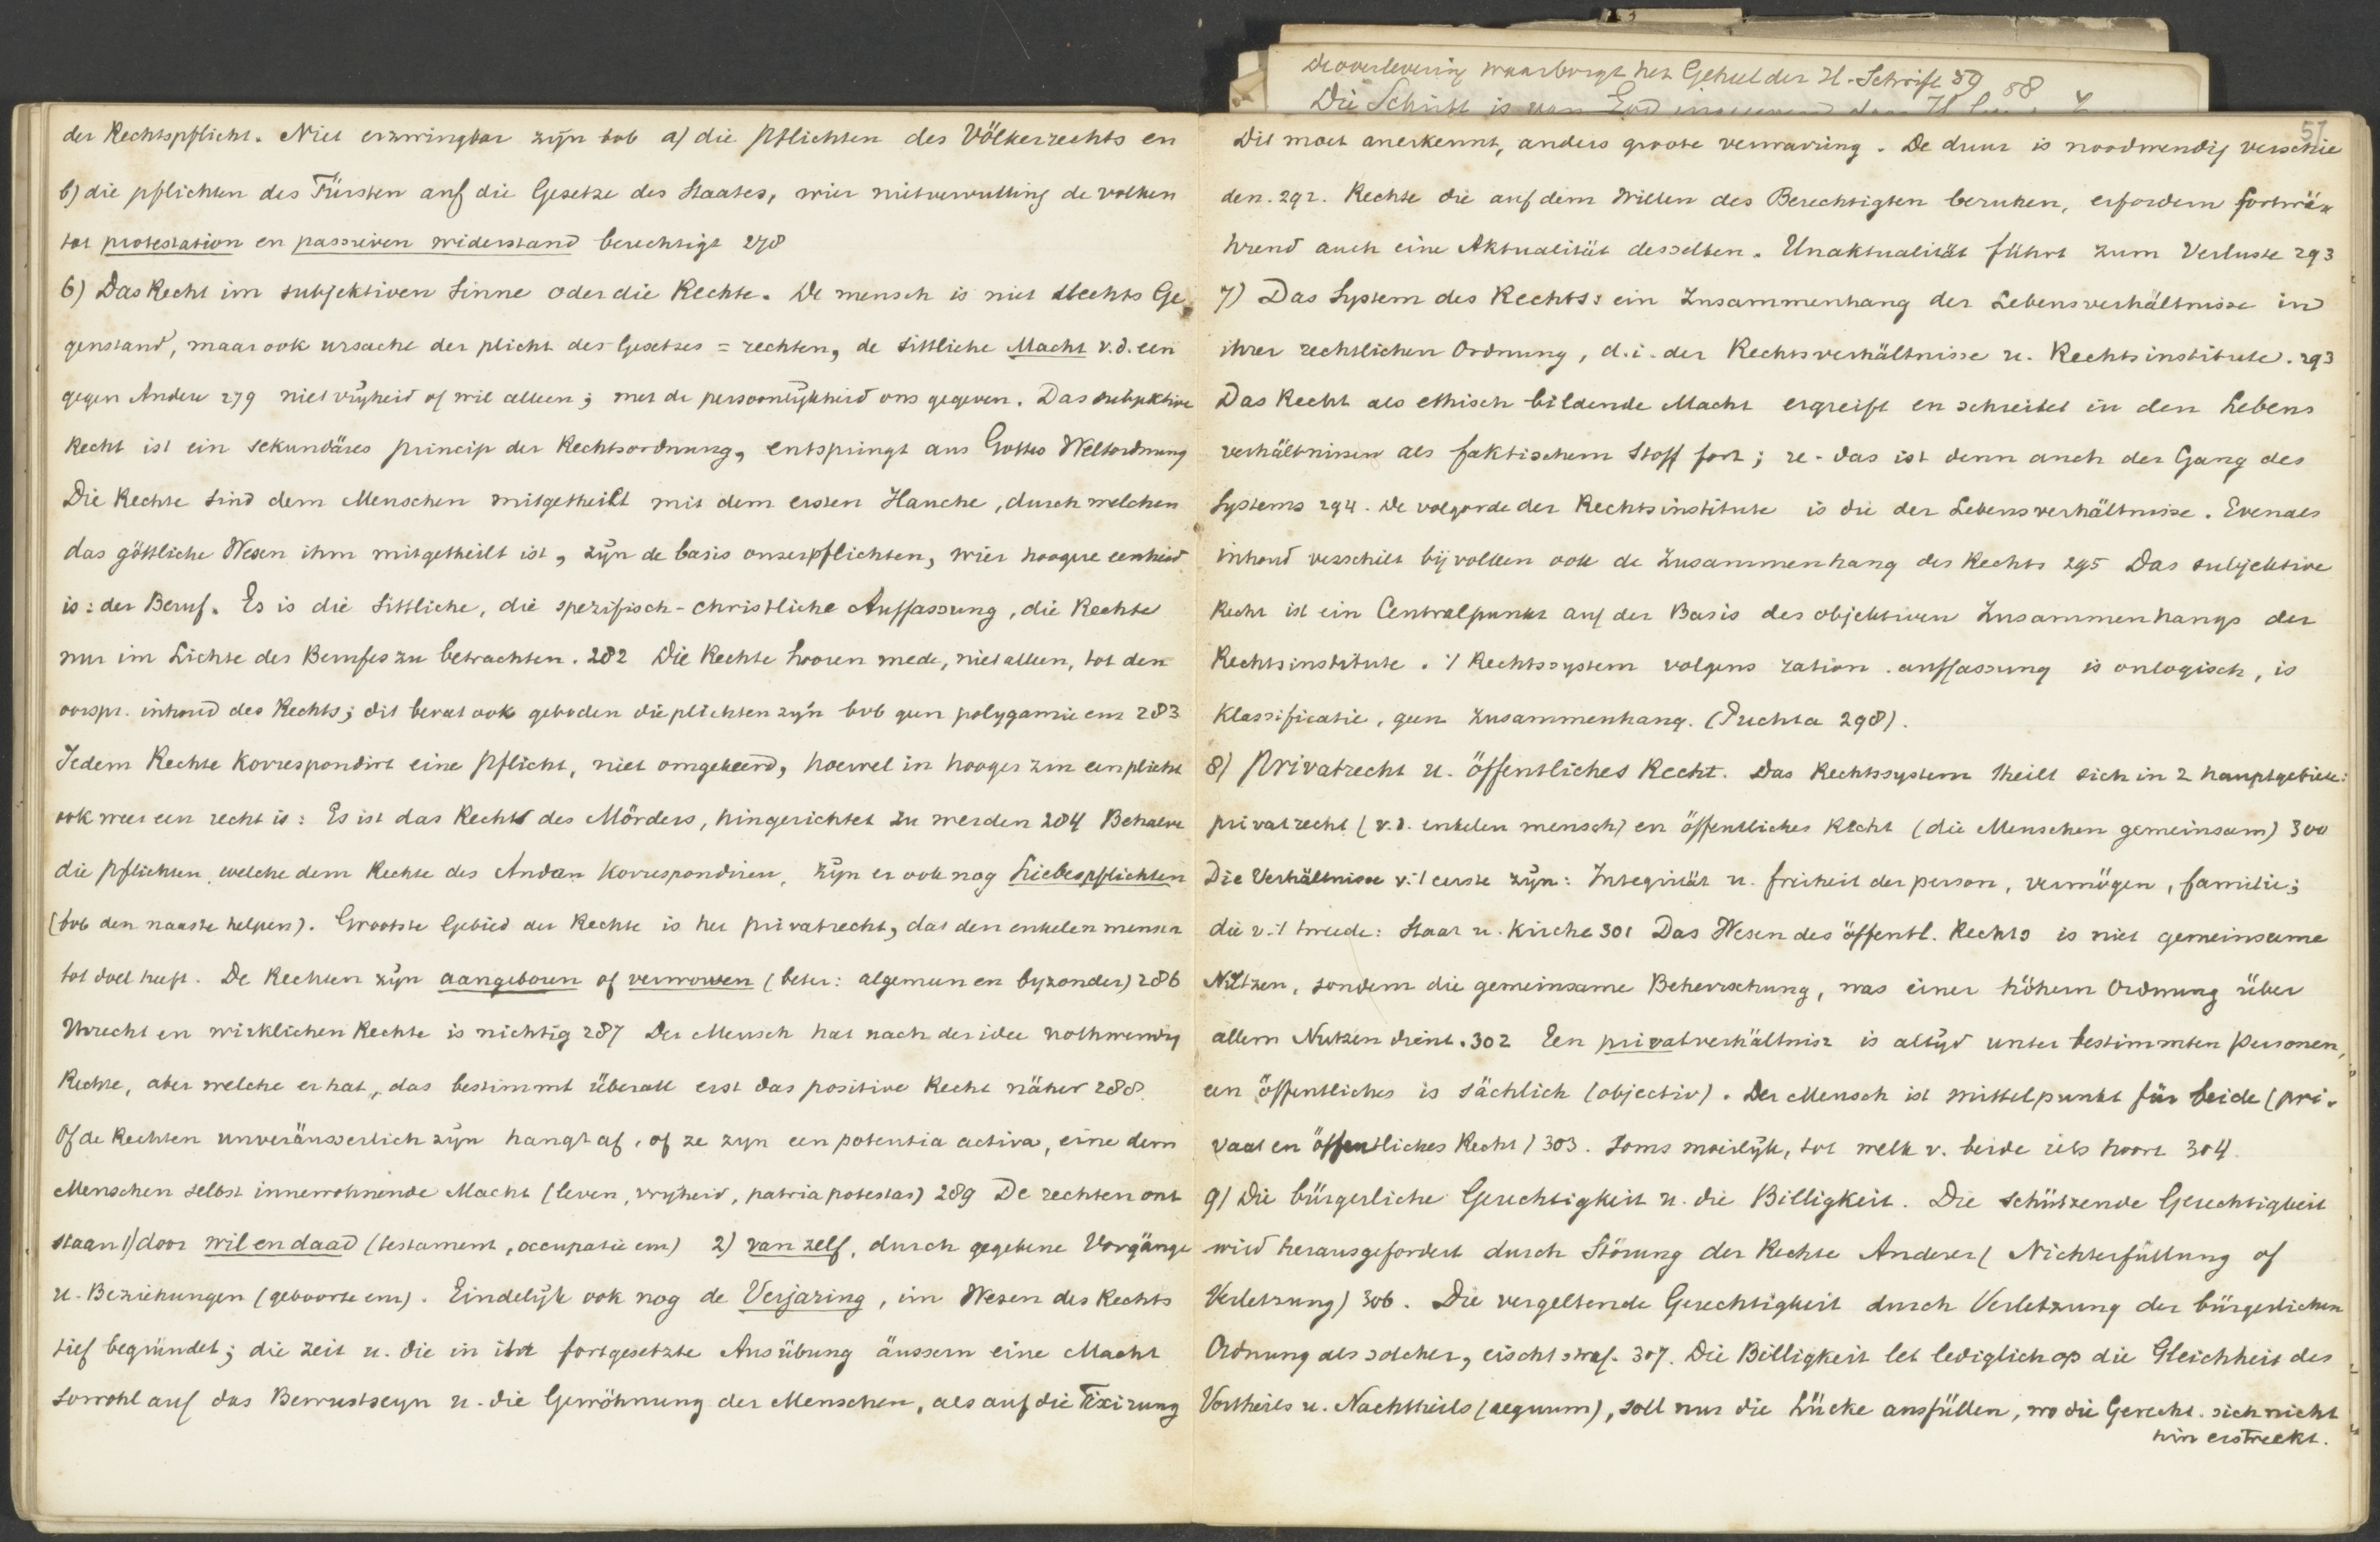 der Rechtspflicht. Niet erzwingbar zijn bvb a) die Pflichten des Völkerrechts en
b) die pflichten des Fürsten auf die Gesetze des Staates, wier nietvervulling de volken
tot protestation en passiven widerstand berechtigt 278
6) Das Recht im subjektiven Sinne oder die Rechte. De mensch is niet slechts Ge
genstand, maar ook ursache der plicht des Gesetzes = rechten, de sittliche Macht v.d. een
gegen Andere 279 niet vrijheid of wil alleen; met de persoonlijkheid ons gegeven. Das subjektive
Recht ist ein sekundäres princip der Rechtsordnung, entspringt aus Gottes Weltordnung
Die Rechte sind dem Menschen mitgetheilt mit dem ersten Hauche, durch welchen
das göttliche Wesen ihm mitgetheilt ist, zijn de basis onzer pflichten, wier hoogere eenheid
is: der Beruf. Es is die sittliche, die spezifisch-christliche Auffassung, die Rechte
nur im Lichte des Berufes zu betrachten. 282 Die Rechte hooren mede, niet alleen, tot den
oorspr. inhoud des Rechts; dit bevat ook geboden die plichten zijn bvb geen polygamie enz 283
Jedem Rechte korrespondirt eine Pflicht, niet omgekeerd, hoewel in hooger zin een plicht
ook weer een recht is: Es ist das Recht des Mörders, hingerichtet zu werden 284 Behalve
die Pflichten, welche dem Rechte des Andern korrespondiren, zijn er ook nog Liebespflichten
(bvb den naaste helpen). Grootste Gebied der Rechte is het privatrecht, dat den enkelen mensch
tot doel heeft. De Rechten zijn aangeboren of verworven (beter: algemeen en byzonder) 286
Urrecht en wirklichen Rechte is nichtig 287 Der Mensch hat nach der idee nothwendig
Rechte, aber welche er hat, das bestimmt überall erst das positive Recht näher 288.
Of de Rechten unveräusserlich zijn hangt af, of ze zyn een potentia activa, eine dem
Menschen selbst innewohnende Macht (leven, vryheid, patria potestas) 289 De rechten ont
staan 1) door wil en daad (testament, occupatie enz) 2) van zelf, durch gegebene Vorgänge
u. Beziehungen (geboorte enz). Eindelijk ook nog de Verjaring, im Wesen des Rechts
tief begründet; die Zeit u. die in ihr fortgesetzte Ausübung äussern eine Macht
sowohl auf das Bewustseyn u. die Gewöhnung der Menschen, als auf die Fixirung
de overlevering waarborgt het Geheel der H. Schrift 59 58
57
Dit moet anerkennt, anders groote verwarring. De duur is noodwendig verschie
den. 292. Rechte die auf dem Willen des Berechtigten beruhen, erfordern fortwä
hrend auch eine Aktualität desselben. Unaktualität führt zum Verluste 293
7) Das System des Rechts: ein Zusammenhang der Lebensverhältnisse in
ihrer rechtlichen Ordnung, d.i. der Rechtsverhältnisse u. Rechtsinstitute. 293
Das Recht als ethisch bildende Macht ergreift en schreitet in den Lebens
verhältnissen als faktischem Stoff fort; das ist denn auch der Gang des
Systems 294. De volgorde der Rechtsinstitute is die der Lebensverhältnisse. Evenals
inhoud verschilt bij volken ook de Zusammenhang des Rechts 295 Das subjektive
Recht ist ein Centralpunkt auf der Basis des objektiven Zusammenhangs der
Rechtsinstitute. 't Rechtssystem volgens ration. auffassung is onlogisch, is
Klassificatie, geen Zusammenhang. (Puchta 298).
8) Privatrecht u. öffentliches Recht. Das Rechtssystem theilt sich in 2 hauptgebiete:
privatrecht (v.d. enkelen mensch) en öffentliches Recht (die Menschen gemeinsam) 300
Die Verhältnisse v.'t eerste zijn: Integrität u. freiheit der person, vermögen, familie;
die v.'t tweede: Staat u. Kirche 301 Das Wesen des öffentl. Rechts is niet gemeinsame
Nützen, sondern die gemeinsame Beherrschung, was einer höhern Ordnung über
allem Nutzen dient. 302 Een privatverhältniss is altijd unter bestimmten Personen,
een öffentliches is sächlich (objectiv). Der Mensch ist mittelpunkt für beide (pri-
vaat en öffentliches Recht) 303. Soms moeilijk, tot welk v. beide iets hoort 304.
9) Die bürgerliche Gerechtigkeit u. die Billigkeit. Die schützende Gerechtigkeit
wird herausgefordert durch Störung der Rechte Anderer (Nichterfüllung of
Verletzung) 306. Die vergeltende Gerechtigkeit durch Verletzung der bürgerlichen
Ordnung als solcher, eischt straf. 307. Die Billigkeit let lediglich op die Gleichheit des
Vortheils u. Nachtheils (aequum), soll nur die Lücke ausfüllen, wo die Gerecht. sich nicht
hin erstreckt.